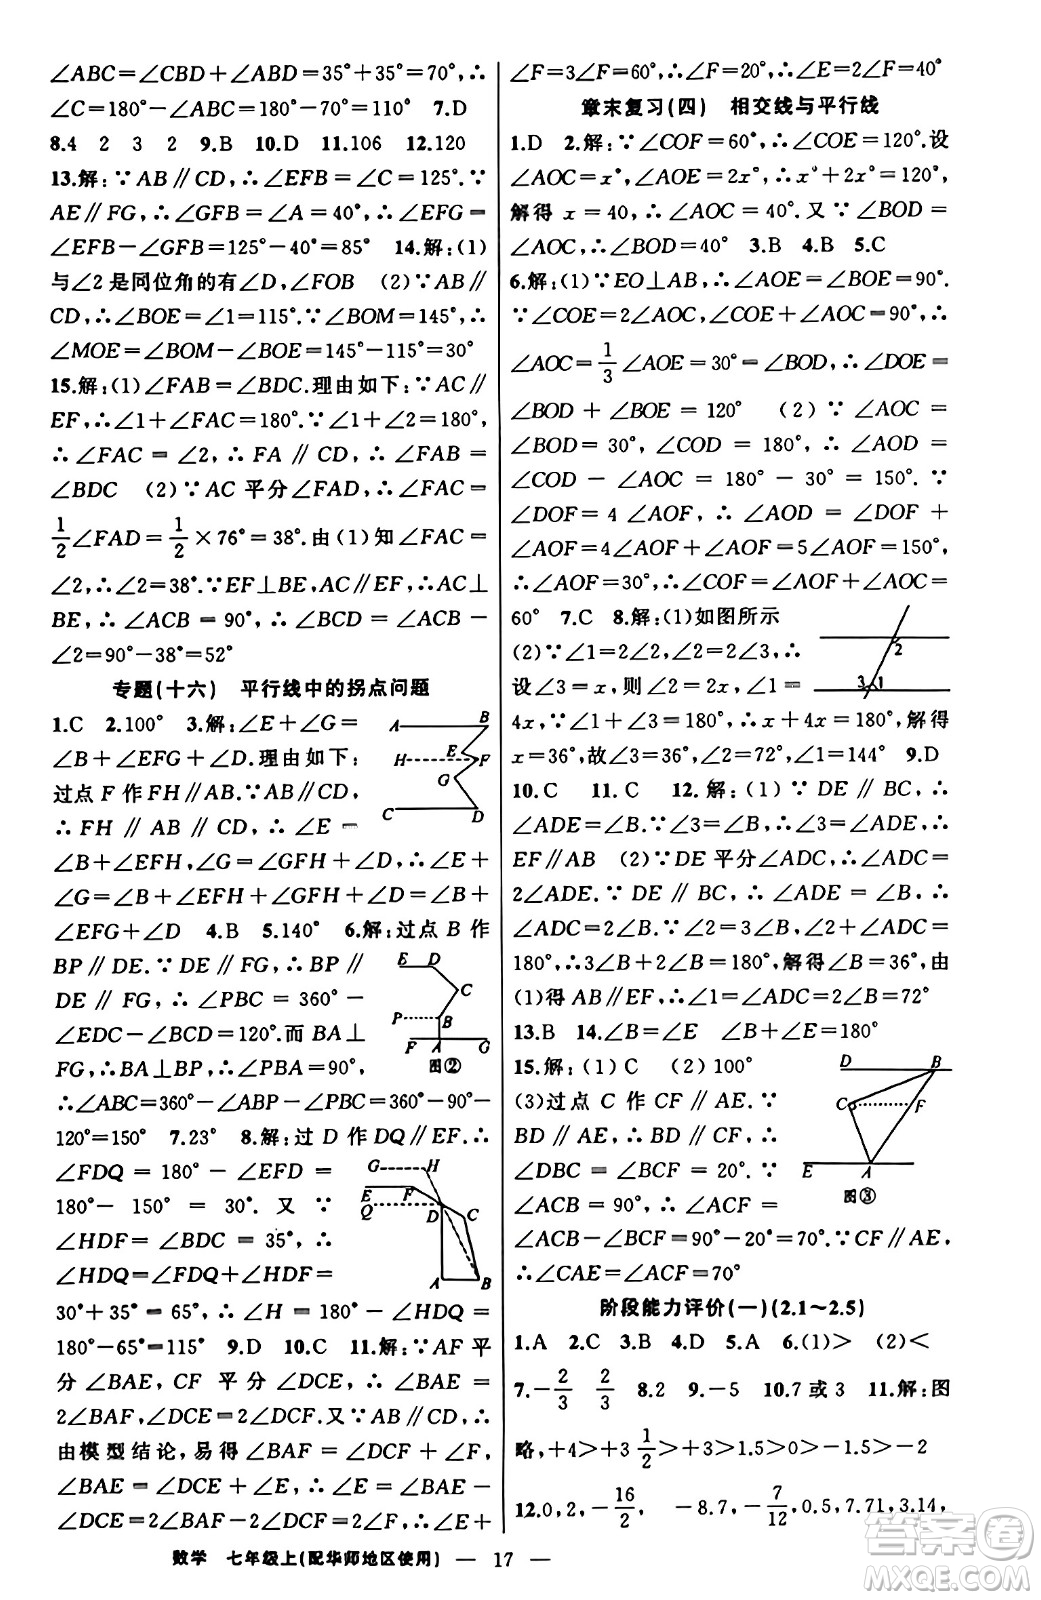 ∠ABC=∠CBD+∠ABD=35°+35°=70°,∴
∠C=180°-∠ABC=180°-70°=110°  7.D
8.4  2  3  2  9.B  10.D  11.106  12.120
13.解:∵AB∥CD,∴∠EFB=∠C=125°.∵
AE∥FG,∴∠GFB=∠A=40°,∴∠EFG=
∠EFB-∠GFB=125°-40°=85°  14.解:(1)
与∠2是同位角的有∠D,∠FOB  (2)∵AB∥
CD,∴∠BOE=∠1=115°.∵∠BOM=145°,∴
∠MOE=∠BOM-∠BOE=145°-115°=30°
15.解:(1)∠FAB=∠BDC.理由如下:∵AC∥
EF,∴∠1+∠FAC=180°.∵∠1+∠2=180°,
∴∠FAC=∠2,∴FA∥CD,∴∠FAB=
∠BDC  (2)∵AC平分∠FAD,∴∠FAC=
1/2∠FAD=1/2×76°=38°.由(1)知∠FAC=
∠2,∴∠2=38°.∵EF⊥BE,AC∥EF,∴AC⊥
BE,∴∠ACB=90°,∴∠BCD=∠ACB-
∠2=90°-38°=52°
专题(十六)  平行线中的拐点问题
1.C  2.100°  3.解:∠E+∠G=
∠B+∠EFG+∠D.理由如下:
过点F作FH∥AB.∵AB∥CD,
∴FH∥AB∥CD,∴∠E=
∠B+∠EFH,∠G=∠GFH+∠D,∴∠E+
∠G=∠B+∠EFH+∠GFH+∠D=∠B+
∠EFG+∠D  4.B  5.140°  6.解:过点B作
BP∥DE.∵DE∥FG,∴BP∥
DE∥FG,∴∠PBC=360°-
∠EDC-∠BCD=120°.而BA⊥
FG,∴BA⊥BP,∴∠PBA=90°,
∴∠ABC=360°-∠ABP-∠PBC=360°-90°-
120°=150°  7.23°  8.解:过D作DQ∥EF.∴
∠FDQ=180°-∠EFD=
180°-150°=30°.又∵
∠HDF=∠BDC=35°,∴
∠HDQ=∠FDQ+∠HDF=
30°+35°=65°,∴∠H=180°-∠HDQ=
180°-65°=115°  9.D  10.C  11.解:∵AF平
分∠BAE,CF平分∠DCE,∴∠BAE=
2∠BAF,∠DCE=2∠DCF.又∵AB∥CD,∴
由模型结论,易得∠BAF=∠DCF+∠F,
∠BAE=∠DCE+∠E,∴∠E=∠BAE-
∠DCE=2∠BAF-2∠DCF=2∠F,∴∠E+
A B
H E F
G
C D
E D
C
P B
F A G
图②
G H
E F
Q
D C
A B
∠F=3∠F=60°,∴∠F=20°,∴∠E=2∠F=40°
章末复习(四)  相交线与平行线
1.D  2.解:∵∠COF=60°,∴∠COE=120°.设
∠AOC=x°,∠AOE=2x°,∴x°+2x°=120°,
解得x=40,∴∠AOC=40°.又∵∠BOD=
∠AOC,∴∠BOD=40°  3.B  4.B  5.C
6.解:(1)∵EO⊥AB,∴∠AOE=∠BOE=90°.
∵∠COE=2∠AOC,∠COE+∠AOC=90°,∴
∠AOC=1/3∠AOE=30°=∠BOD,∴∠DOE=
∠BOD+∠BOE=120°  (2)∵∠AOC=
∠BOD=30°,∠COD=180°,∴∠AOD=
∠COD-∠AOC=180°-30°=150°.∵
∠DOF=4∠AOF,∴∠AOD=∠DOF+
∠AOF=4∠AOF+∠AOF=5∠AOF=150°,
∴∠AOF=30°,∴∠COF=∠AOF+∠AOC=
60°  7.C  8.解:(1)如图所示
(2)∵∠1=2∠2,∠2=2∠3,∴
设∠3=x,则∠2=2x,∠1=
4x,∵∠1+∠3=180°,∴x+4x=180°,解得
x=36°,故∠3=36°,∠2=72°,∠1=144°  9.D
10.C  11.C  12.解:(1)∵DE∥BC,∴
∠ADE=∠B.∵∠3=∠B,∴∠3=∠ADE,∴
EF∥AB  (2)∵DE平分∠ADC,∴∠ADC=
2∠ADE.∵DE∥BC,∴∠ADE=∠B,∴
∠ADC=2∠B.∵∠2=3∠B,∠2+∠ADC=
180°,∴3∠B+2∠B=180°,解得∠B=36°,由
(1)得AB∥EF,∴∠1=∠ADC=2∠B=72°
13.B  14.∠B=∠E  ∠B+∠E=180°
15.解:(1)C  (2)100°
(3)过点C作CF∥AE.∵
BD∥AE,∴BD∥CF,∴
∠DBC=∠BCF=20°.∵
∠ACB=90°,∴∠ACF=
∠ACB-∠BCF=90°-20°=70°.∵CF∥AE,
∴∠CAE=∠ACF=70°
2
3 1
D B
C F
E A
图③
阶段能力评价(一)(2.1~2.5)
1.A  2.C  3.B  4.D  5.A  6.(1)>  (2)<
7.-2/3  2/3  8.2  9.-5  10.7或3  11.解:图
略,+4>+3 1/2>+3>1.5>0>-1.5>-2
12.0,2,-16/2,  -8.7,-7/12,0.5,7.71,3.14,
数学  七年级上(配华师地区使用)  — 17 —
答案圈
MXQE.COM